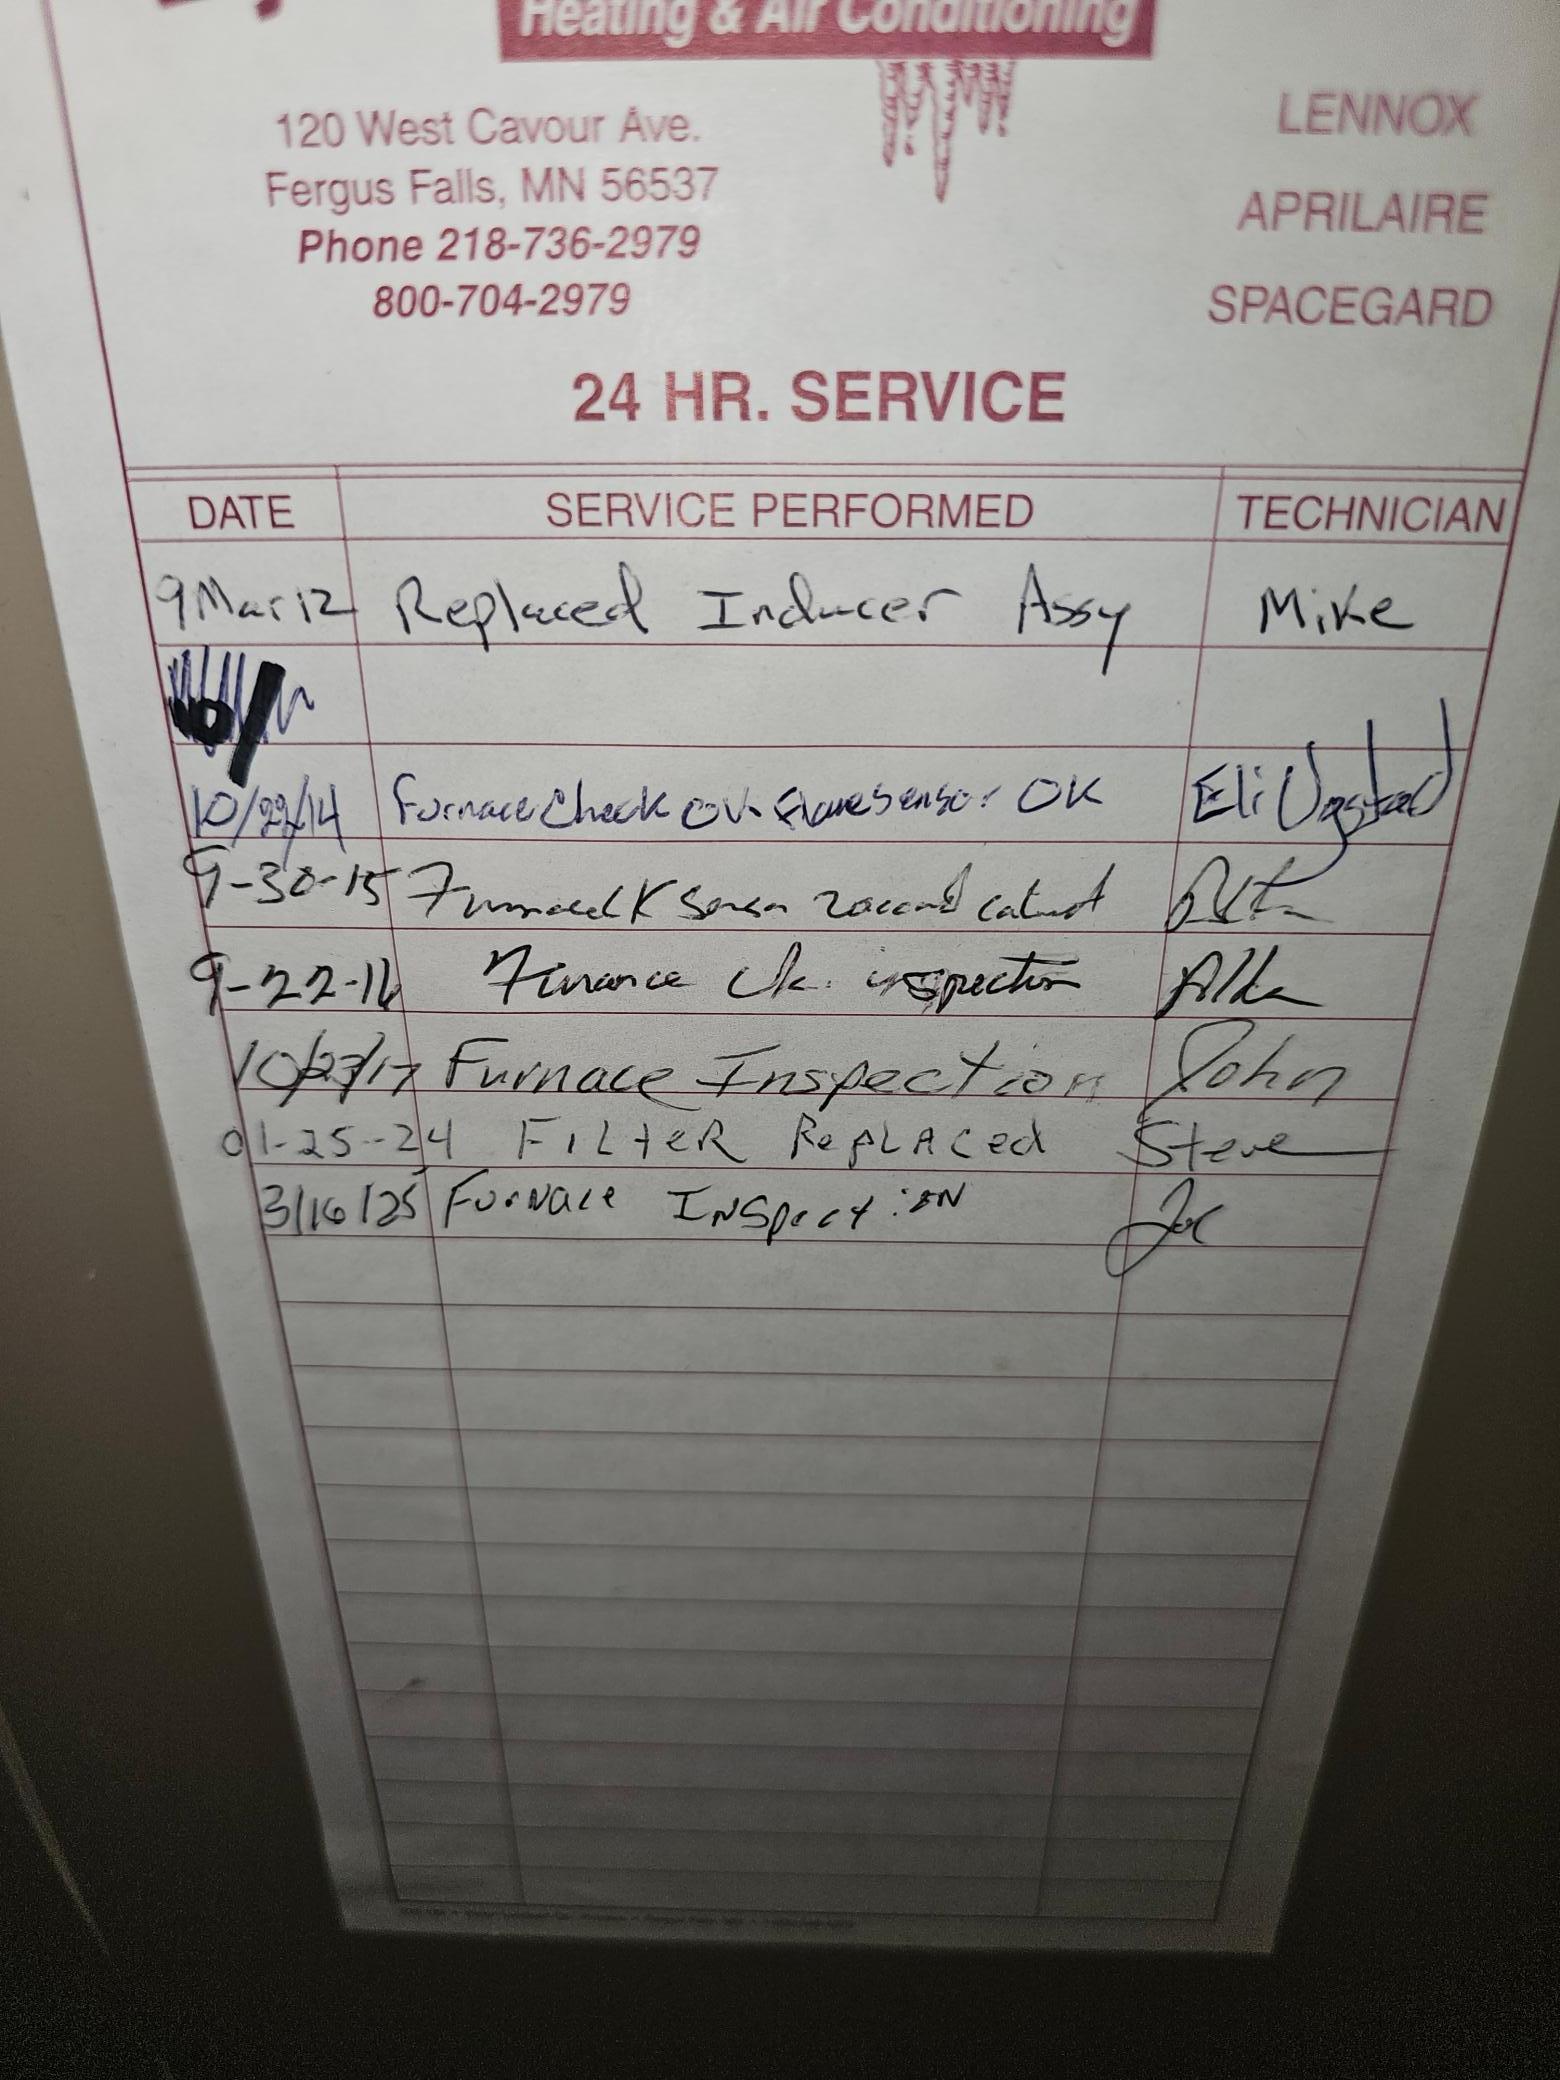 Heating & Air Conditioning
120 West Cavour Ave.
Fergus Falls, MN 56537
Phone 218-736-2979
800-704-2979
LENNOX
APRILAIRE
SPACEGARD
24 HR. SERVICE
DATE SERVICE PERFORMED TECHNICIAN
9 Mar 12 Replaced Inducer Assy Mike
10/22/14 Furnace Check OK Flame sensor OK Eli
9-30-15
9-22-16 Furnace Ck. inspection
10/23/17 Furnace Inspection John
01-25-24 FILteR RePLACed Steve
3/16/25 Furnace INSpection Joe